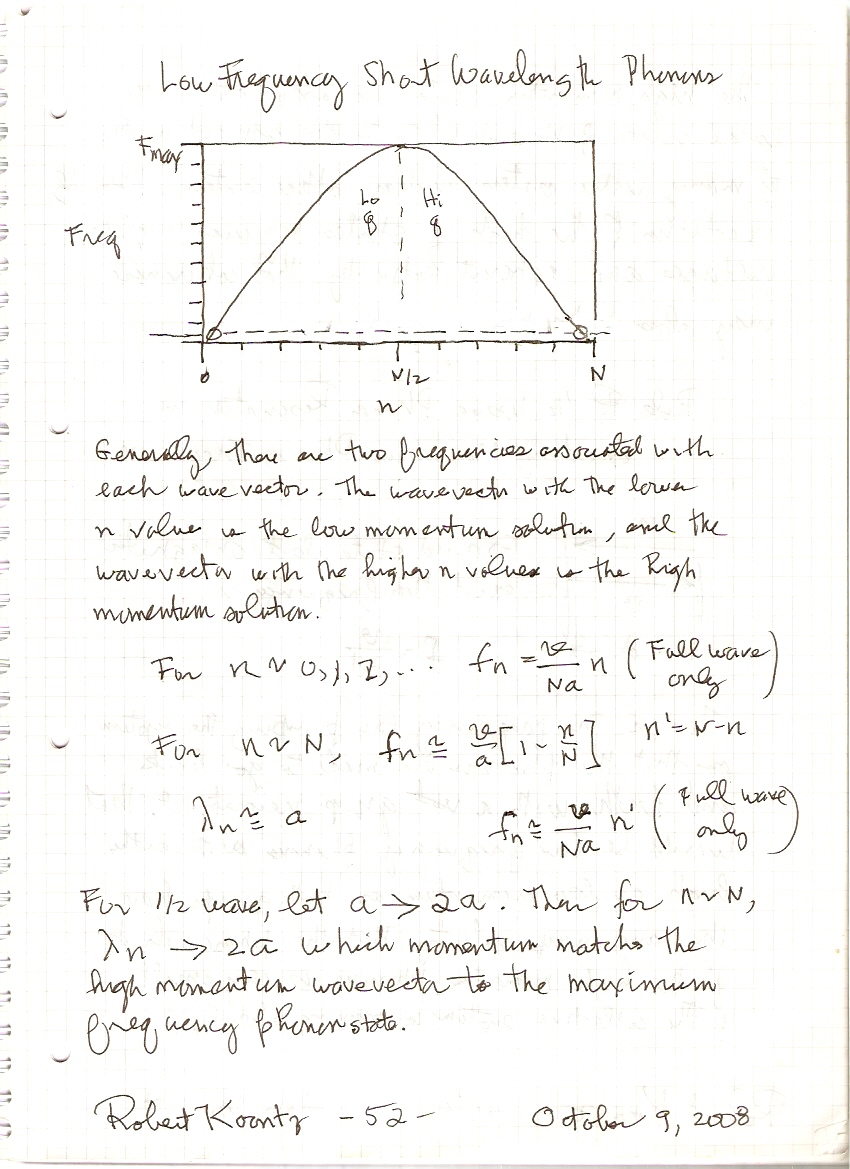 Low Frequency Short Wavelength Phonons
Fmax
Lo Hi
q q
Freq
0 N/2 N
n
Generally, there are two frequencies associated with
each wavevector. The wavevector with the lower
n value is the low momentum solution, and the
wavevector with the higher n values is the high
momentum solution.
For n ~ 0, 1, 2, ... fn = v/Na n (Full wave only)
For n ~ N, fn ≅ v/a [1 - n/N] n' = N-n
λn ≅ a fn ≅ v/Na n' (Full wave only)
For 1/2 wave, let a → 2a. Then for n ~ N,
λn → 2a which momentum matches the
high momentum wavevector to the maximum
frequency phonon state.
Robert Koontz - 52 - October 9, 2008